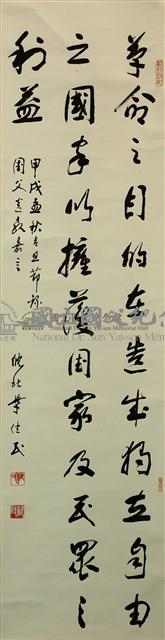 革命之目的在造成獨立自由
之國家以擁護國家及民眾之
利益
甲戌孟秋吉旦節錄
國父遺教嘉言
皖北葉
國立國父紀念館
National Dr. Sun Yat-sen Memorial Hall